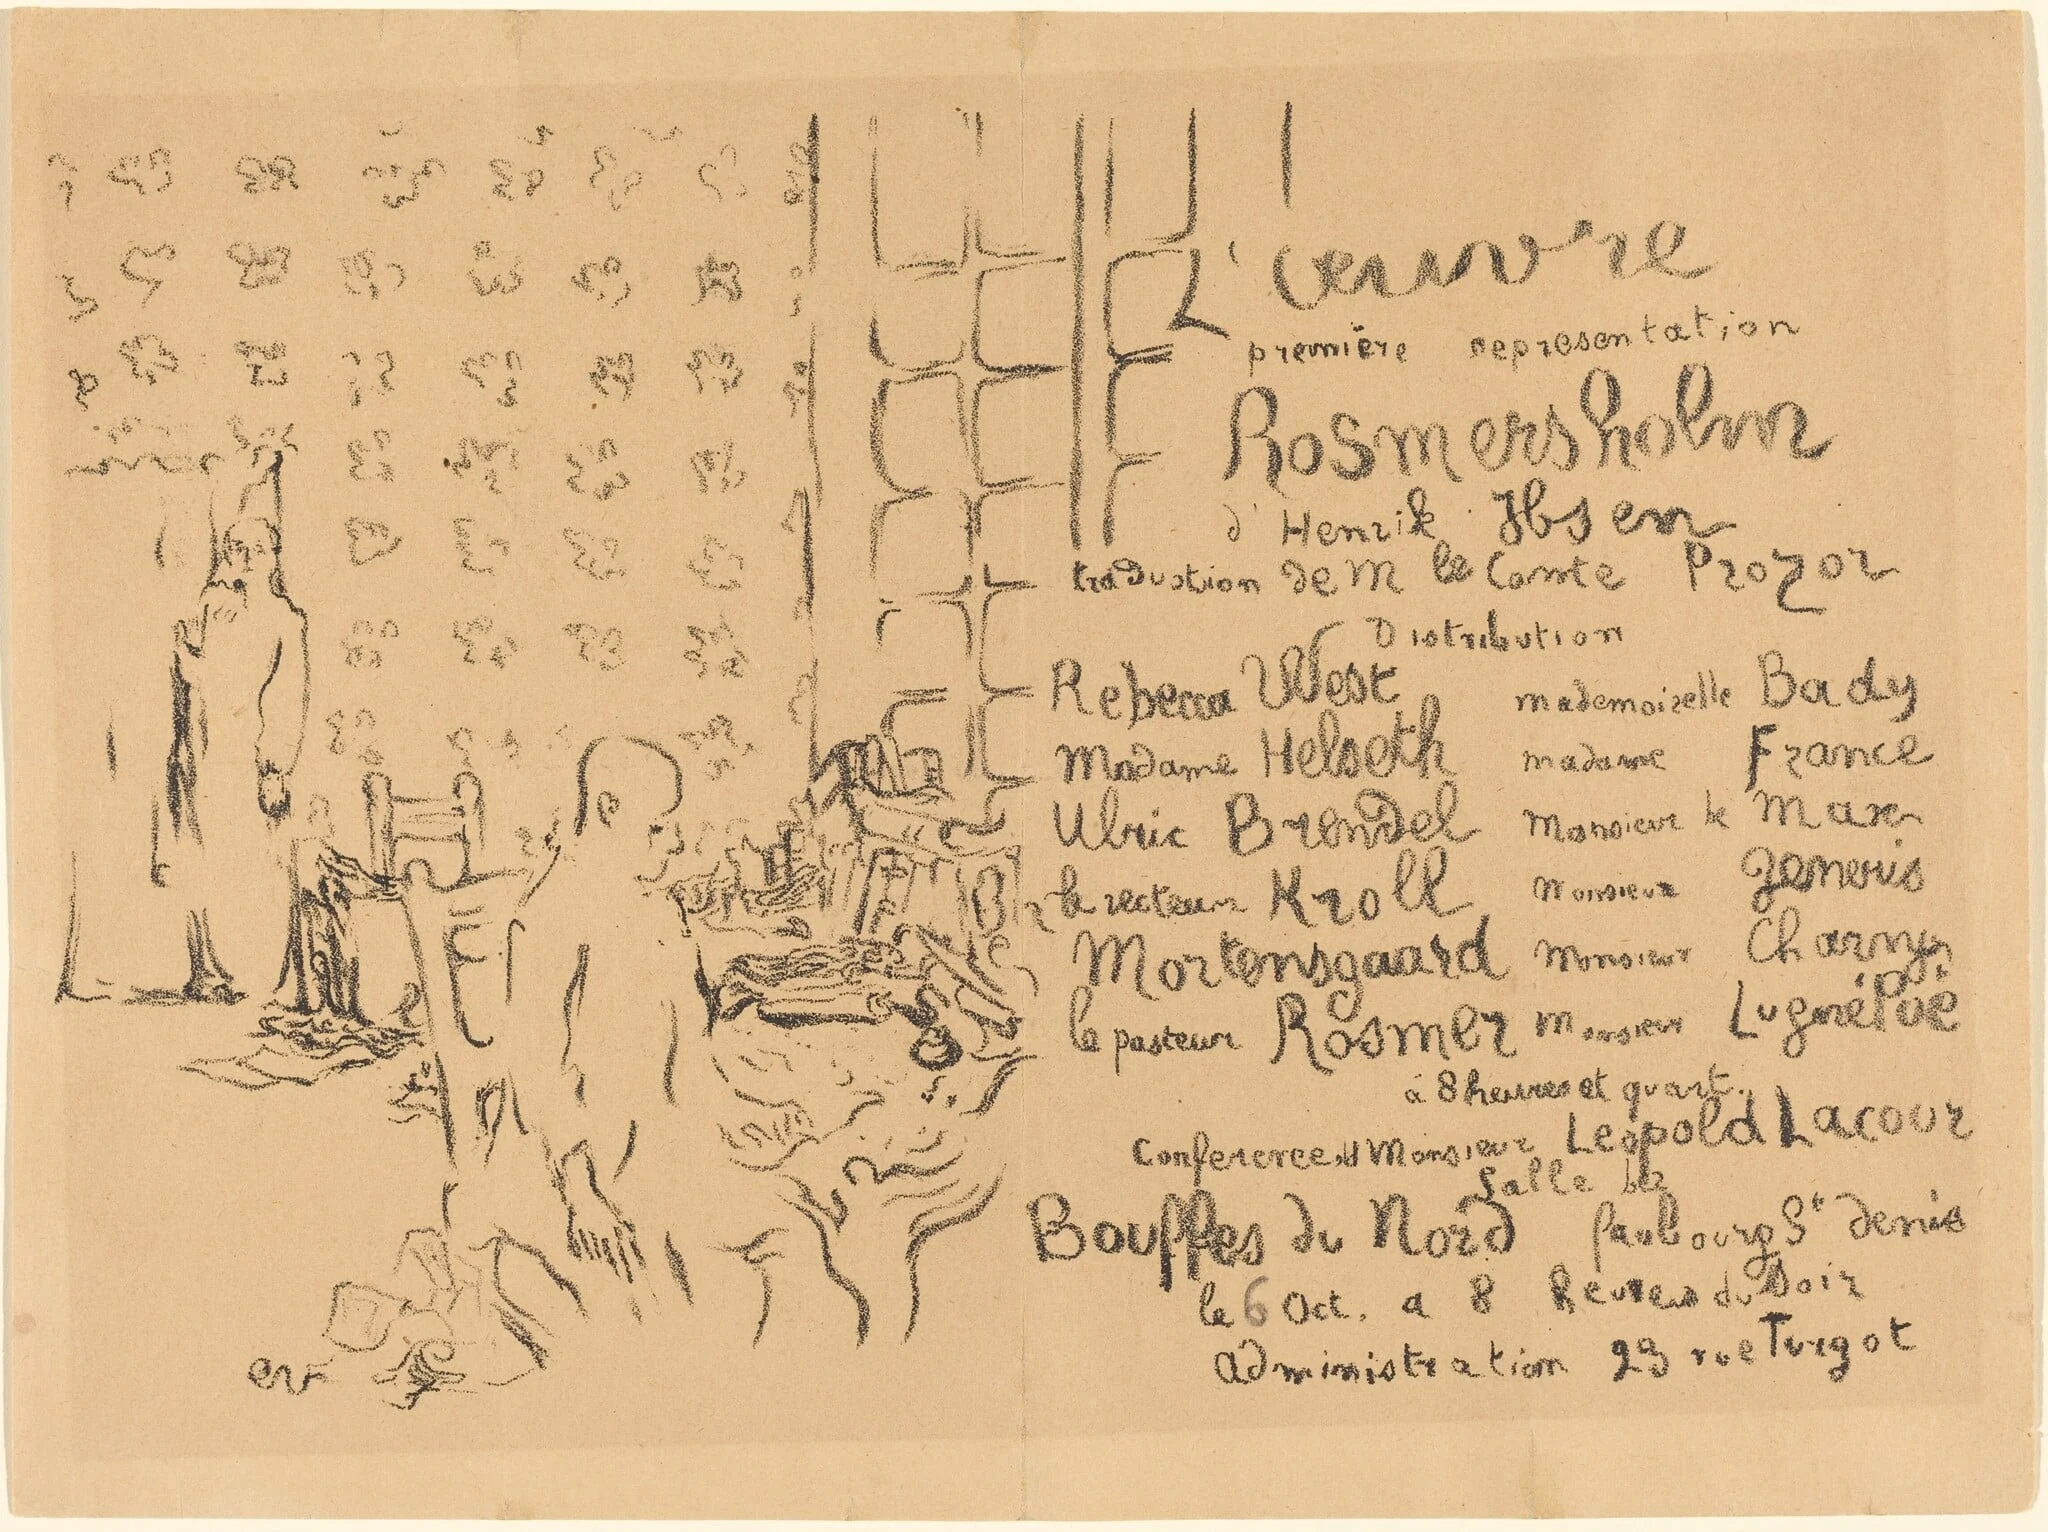 L'œuvre
première representation
Rosmersholm
d'Henrik Ibsen
traduction de M le Comte Prozor
Distribution
Rebecca West mademoiselle Bady
Madame Helseth madame France
Ulric Brendel Monsieur de Max
le recteur Kroll Monsieur
Mortensgaard Monsieur Charny
le pasteur Rosmer Monsieur LugnéPoë
à 8 heures et quart.
Conference Monsieur Leopold Lacour
Salle des
Bouffes du Nord faubourg St denis
le 6 Oct. a 8 heures du Soir
administration 23 rue Turgot
ev